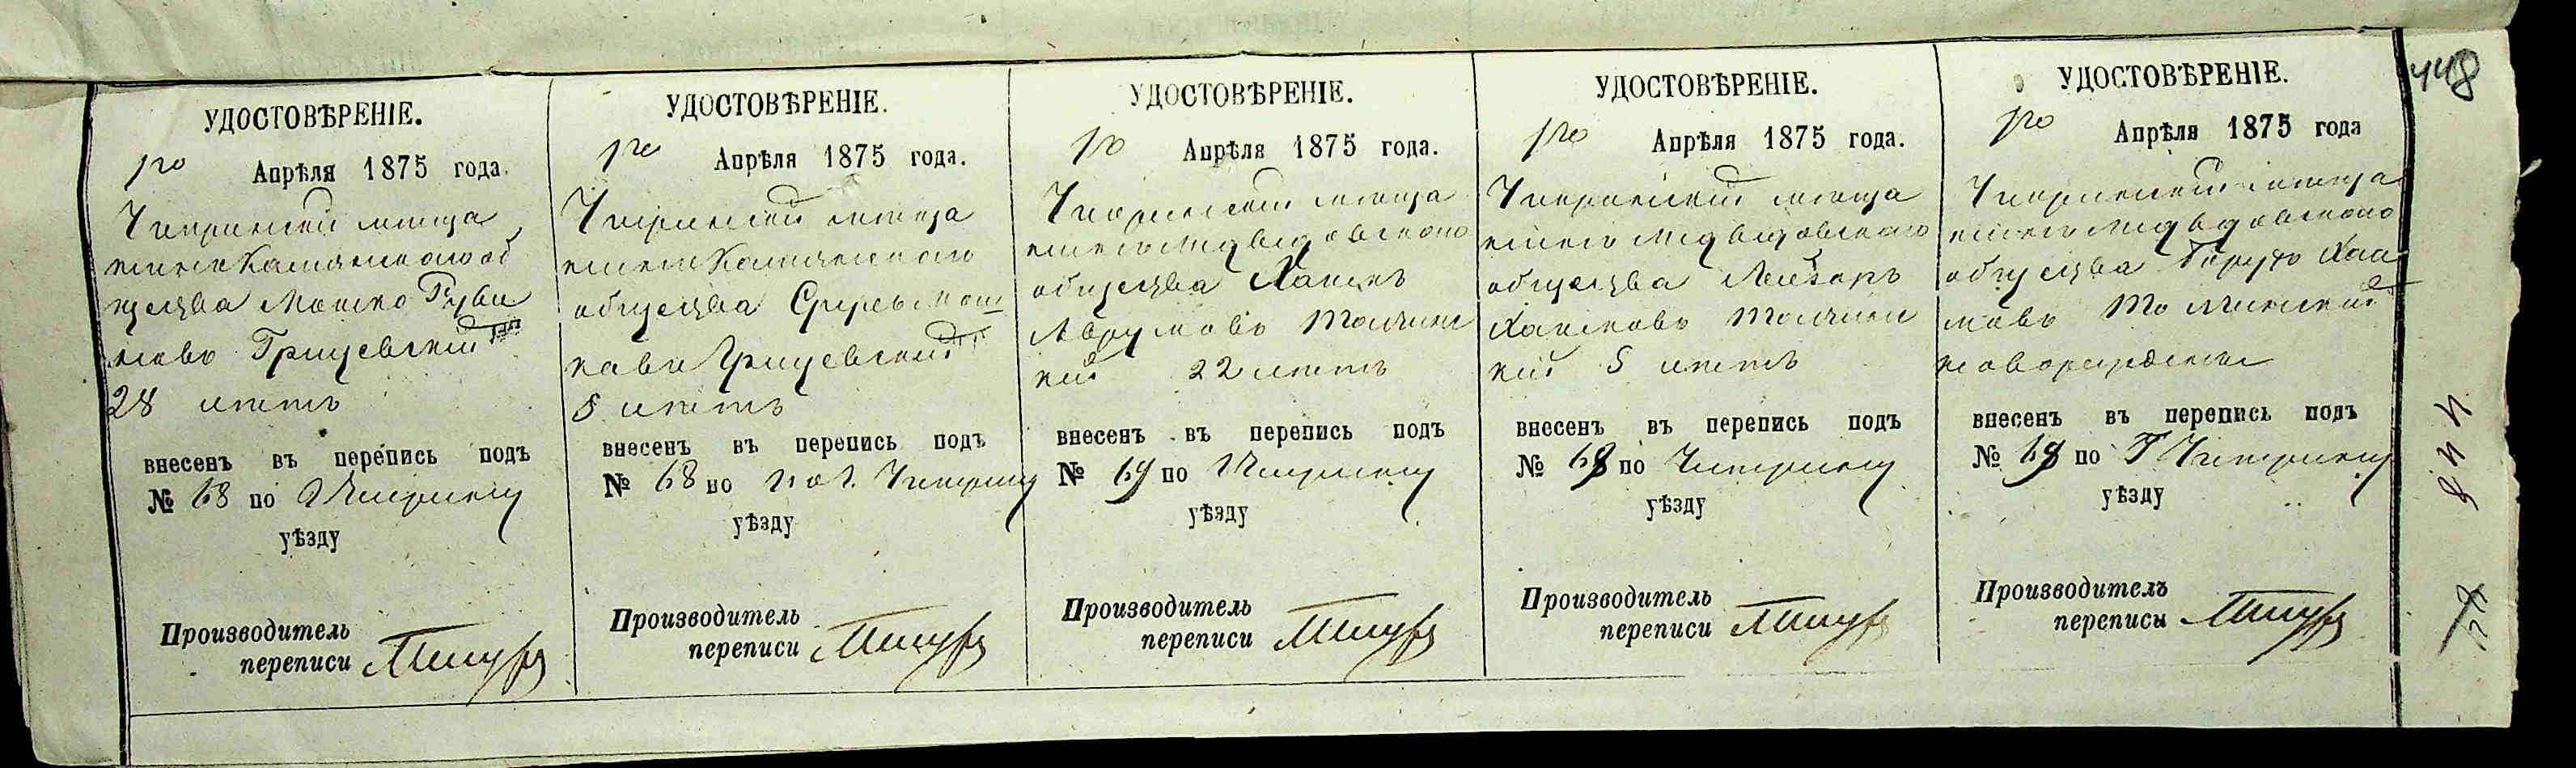 УДОСТОВѢРЕНІЕ.
1го Апрѣля 1875 года.
Чигринскій мѣща
нинъ Каменскаго об
щества Мошко Руви
новъ Грищевскій
28 лѣтъ
внесенъ въ перепись подъ
№ 68 по Чигринску
уѣзду
Производитель
переписи
УДОСТОВѢРЕНІЕ.
1го Апрѣля 1875 года.
Чигринскій мѣща
нинъ Каменскаго
общества Сруль Мош
ковъ Грищевскій
5 лѣтъ
внесенъ въ перепись подъ
№ 68 по Чигринску
уѣзду
Производитель
переписи
УДОСТОВѢРЕНІЕ.
1го Апрѣля 1875 года.
Чигринскій мѣща
нинъ Медвѣдовскаго
общества Хаимъ
Аврумовъ Толчинс
кій 22 лѣтъ
внесенъ въ перепись подъ
№ 69 по Чигринску
уѣзду
Производитель
переписи
УДОСТОВѢРЕНІЕ.
1го Апрѣля 1875 года.
Чигринскій мѣща
нинъ Медвѣдовскаго
общества Лейзеръ
Хаимовъ Толчинс
кій 5 лѣтъ
внесенъ въ перепись подъ
№ 69 по Чигринску
уѣзду
Производитель
переписи
УДОСТОВѢРЕНІЕ.
1го Апрѣля 1875 года
Чигринскій мѣща
нинъ Медвѣдовскаго
общества Берко Хаи
мовъ Толчинскій
новорожденный
внесенъ въ перепись подъ
№ 69 по Чигринску
уѣзду
Производитель
переписи
448
448